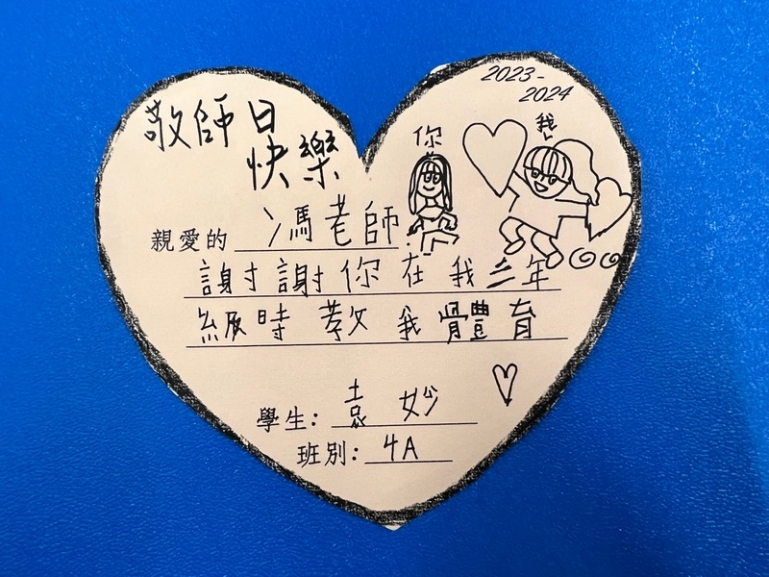 敬師日
快樂
2023-
2024
你
我
親愛的 馮老師:
謝謝你在我三年
級時教我體育
學生: 袁妙
班別: 4A